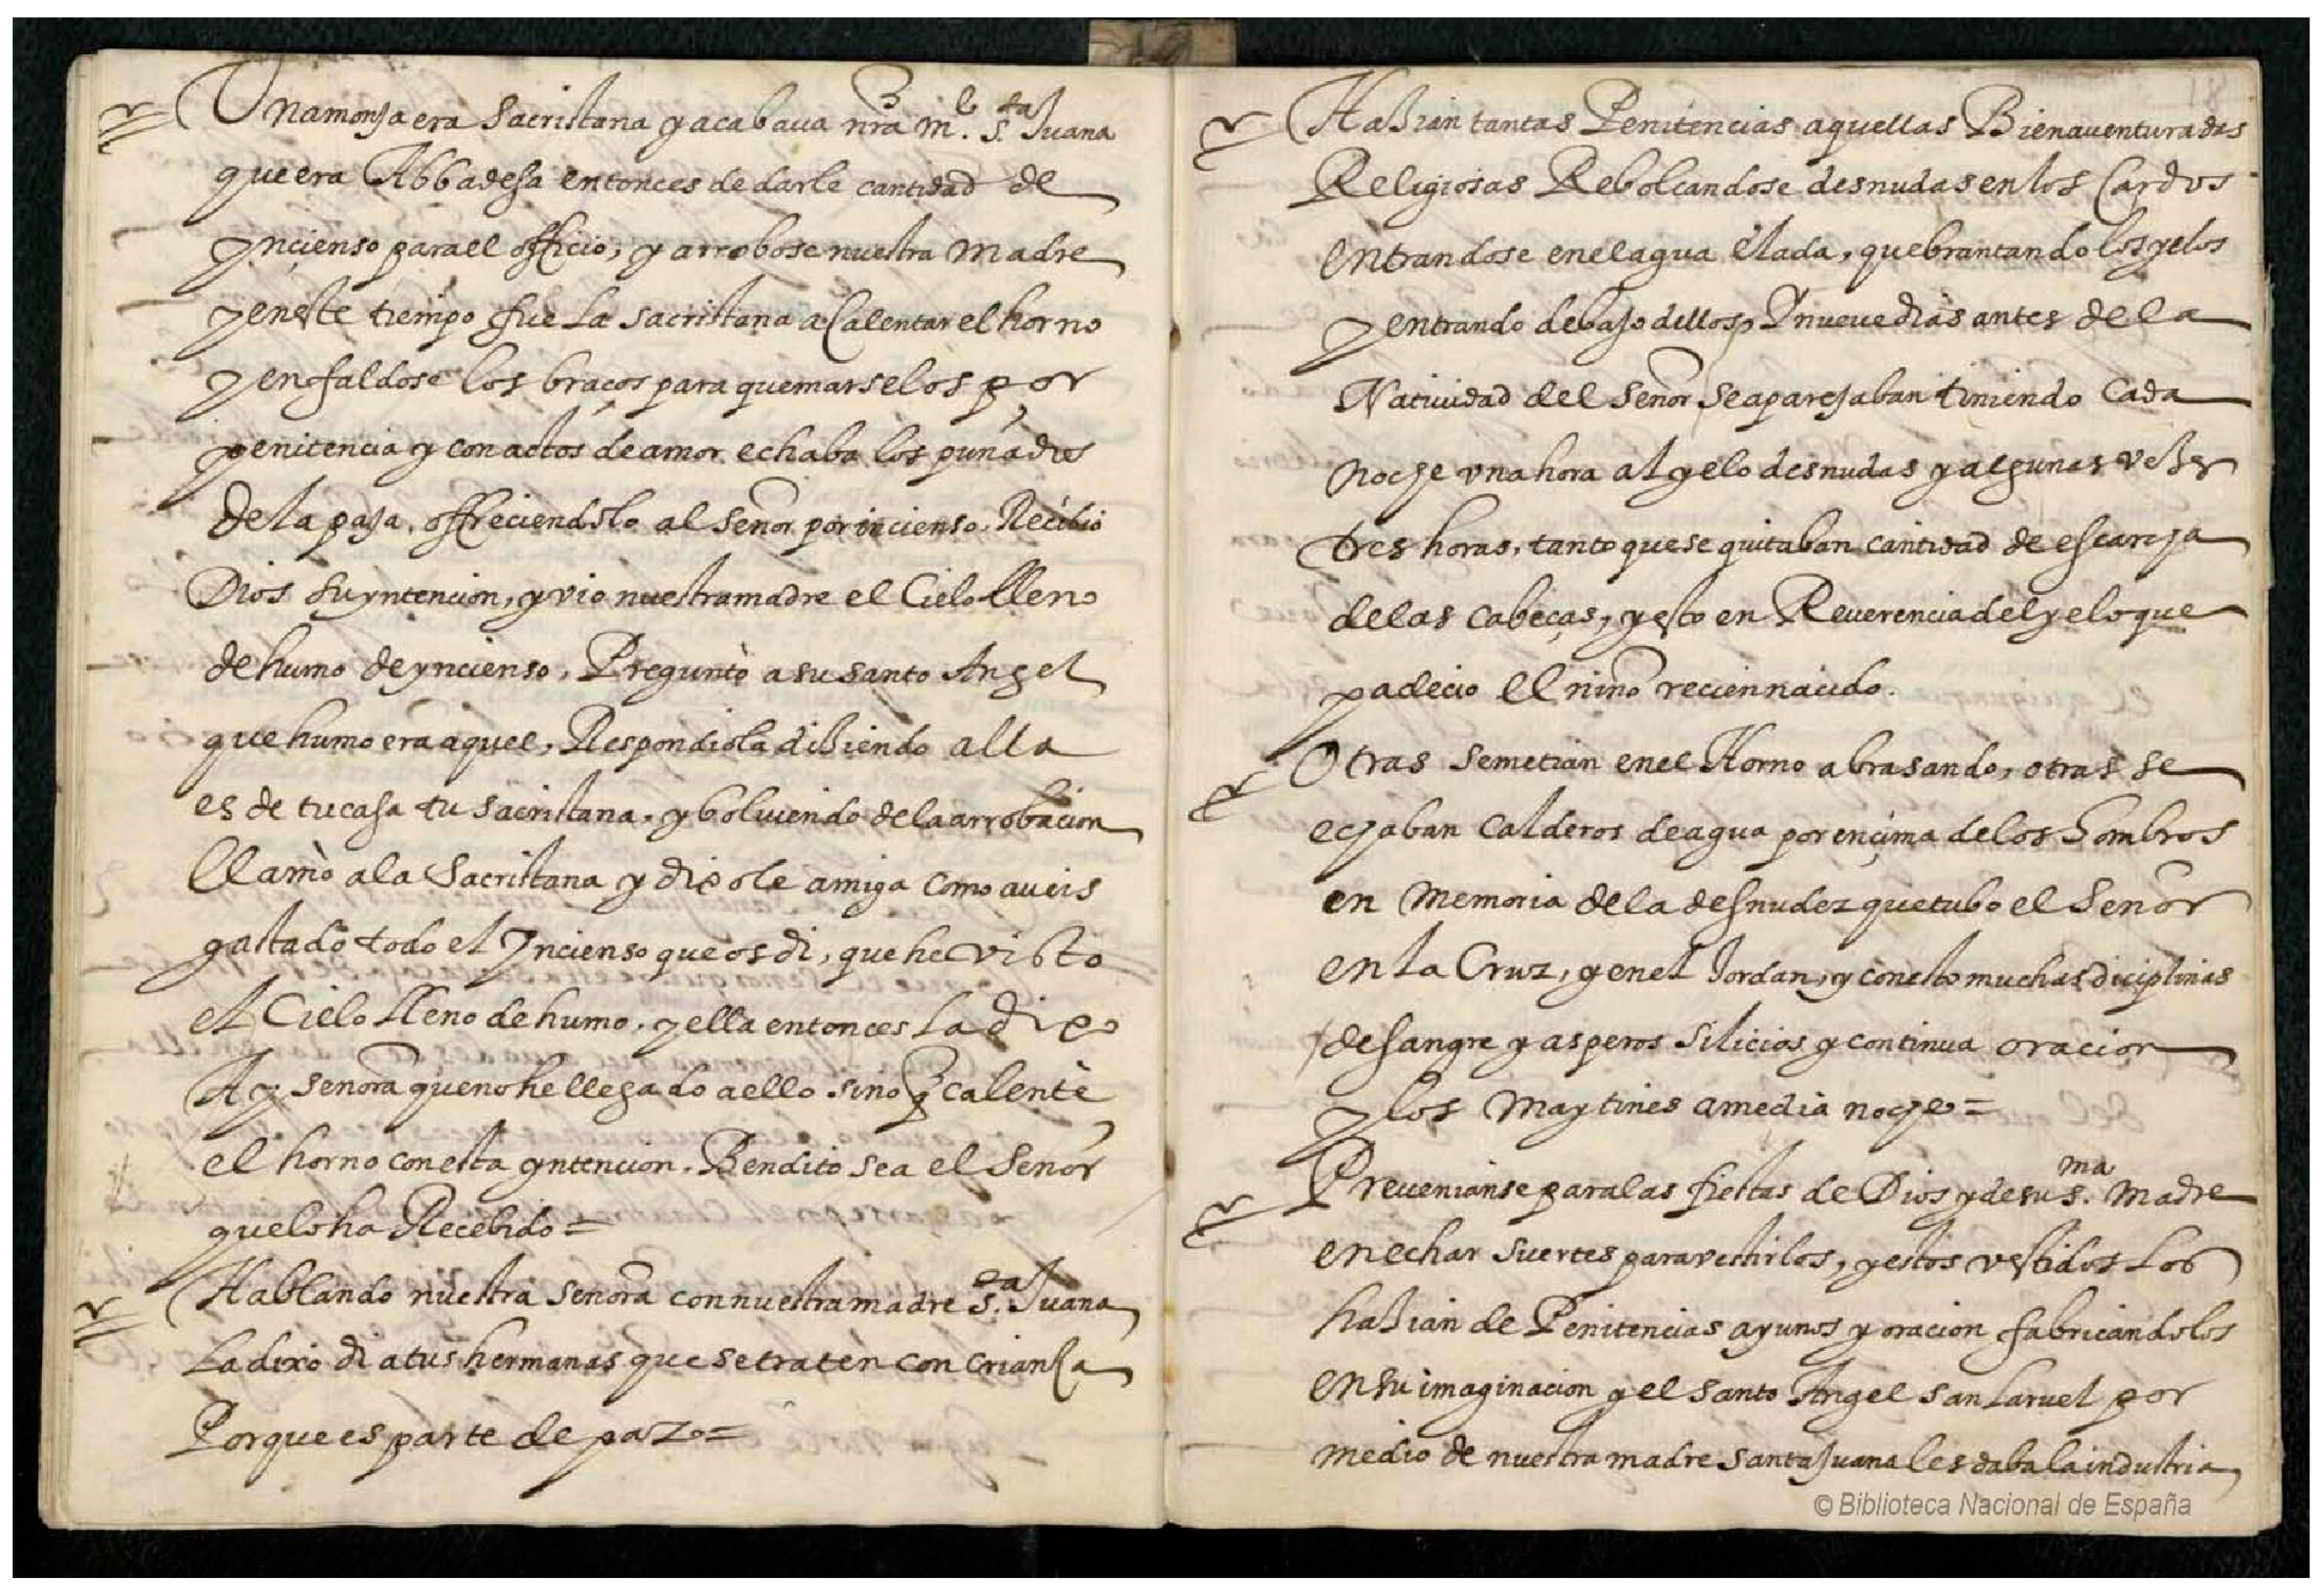 Una monja era Sacristana y acabaua nra m.e S.ta Juana
que era Abbadesa entonces de darle cantidad de
yncienso para el officio, y arrobose nuestra Madre
y en este tiempo fue La Sacristana a Calentar el horno
y enfaldose los braços para quemarselos por
penitencia y con actos de amor echaba los puñados
de la paja, offreciendolo al Señor por incienso. Recibio
Dios su yntencion, y vio nuestra madre el Cielo lleno
de humo de yncienso, Preguntò a su santo Angel
que humo era aquel, Respondiola diziendo alla
es de tu casa tu Sacristana, y bolviendo de la arrobacion
llamò a la Sacristana y dixole amiga como aueis
gastado todo el Yncienso que os di, que he visto
el Cielo lleno de humo, y ella entonces La dixo
Ay señora que no he llegado a ello sino q calentè
el horno con esta yntencion. Bendito sea el Señor
que lo ha Recebido =
Hablando nuestra Señora con nuestra madre S.ta Juana
La dixo di a tus hermanas que se traten con criança
Porque es parte de paz =
Hazian tantas Penitencias aquellas Bienauenturadas
Religiosas Rebolcandose desnudas en los Cardos
entrandose en el agua elada, quebrantando los yelos
y entrando debajo dellos, Y nueue dias antes de la
Natiuidad del Señor se aparejaban tiniendo cada
noche vna hora al yelo desnudas y algunas vezes
tres horas, tanto que se quitaban cantidad de escarcha
de las cabeças, y esto en Reuerencia del yelo que
padecio el niño recien nacido.
Otras se metian en el Horno abrasando, otras se
echaban calderos de agua por ençima de los hombros
en memoria de la desnudez que tubo el Señor
en la Cruz, y en el Jordan, y con esto muchas diciplinas
de sangre y asperos silicios y continua oracion
y los maytines a media noche =
Preuenianse para las fiestas de Dios y de su S.ma Madre
en echar suertes para vestirlos, y estos vestidos Los
hazian de Penitencias ayunos y oracion fabricandolos
en su imaginacion y el santo Angel san Laruel por
medio de nuestra madre santa Juana les daba la industria,
© Biblioteca Nacional de España